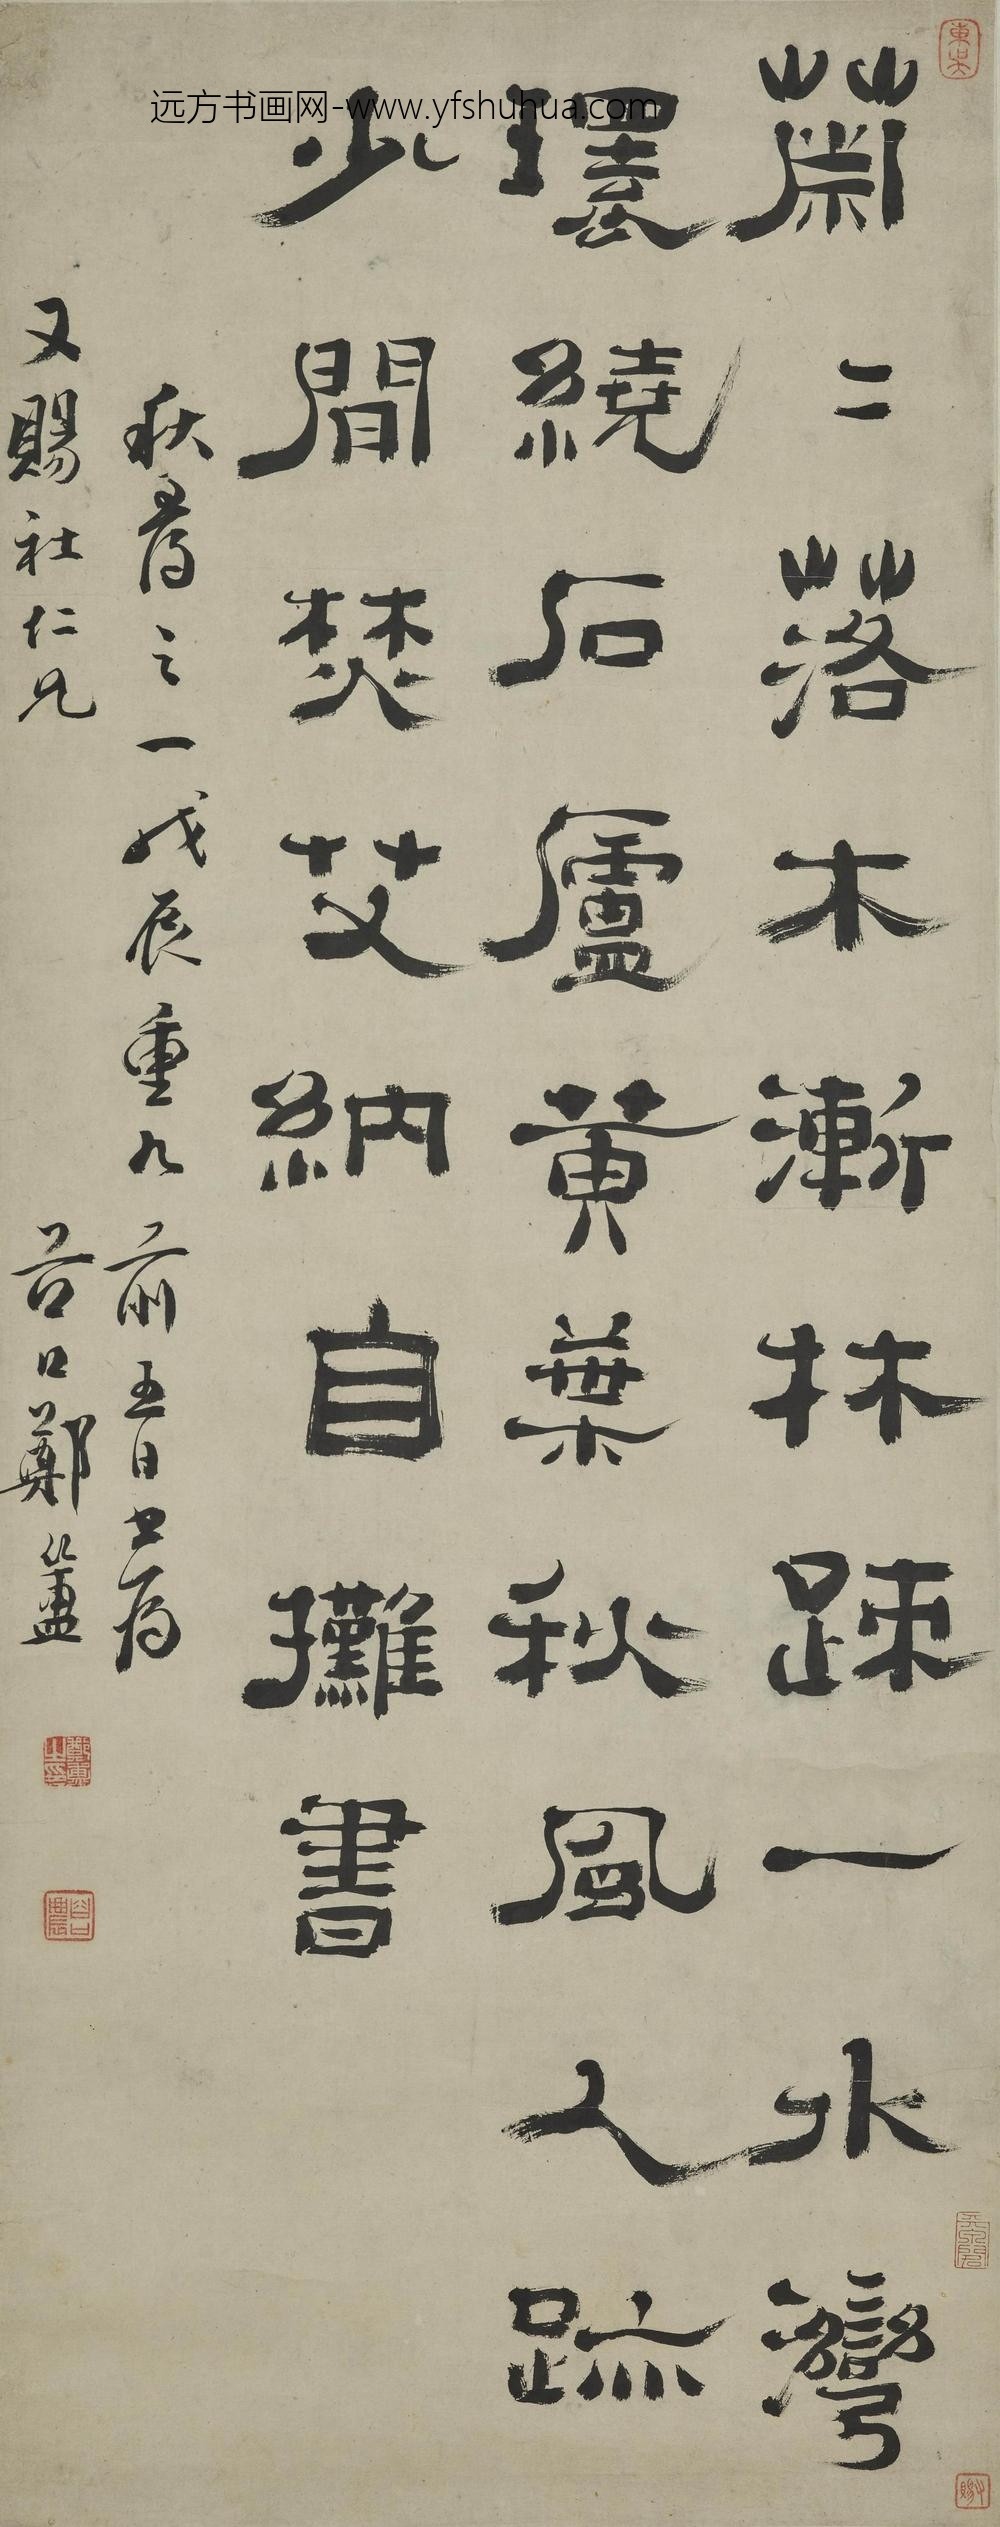 萧二落木漸林踈一水灣
環繞石廬黄葉秋風人跡
少間焚艾納自攤書
秋著之一戊辰重九前五日書為
又賜社仁兄
谷口鄭簠
远方书画网-www.yfshuhua.com
東吴
鄭簠之印
谷口農